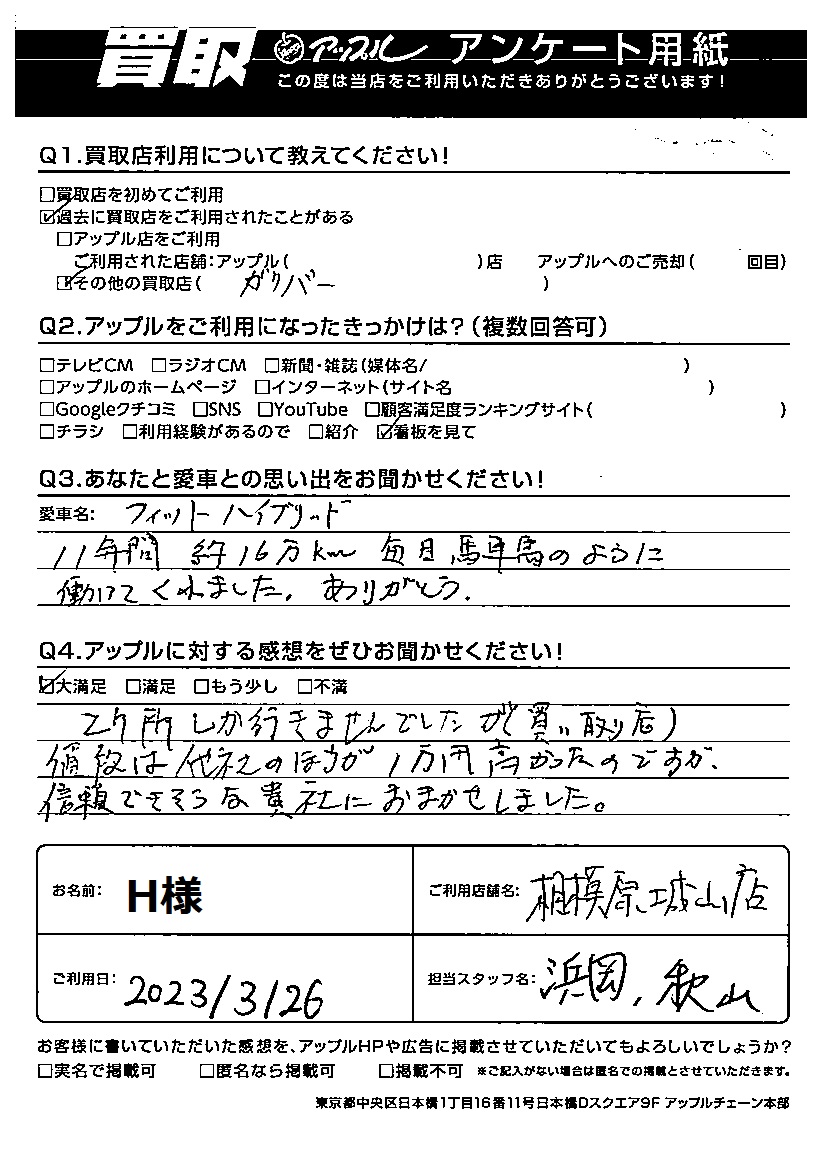 買取 アップル アンケート用紙
この度は当店をご利用いただきありがとうございます!
Q1.買取店利用について教えてください!
□買取店を初めてご利用
☑過去に買取店をご利用されたことがある
□アップル店をご利用
ご利用された店舗:アップル( )店 アップルへのご売却( 回目)
☑その他の買取店( ガリバー )
Q2.アップルをご利用になったきっかけは?(複数回答可)
□テレビCM □ラジオCM □新聞・雑誌(媒体名/ )
□アップルのホームページ □インターネット(サイト名 )
□Googleクチコミ □SNS □YouTube □顧客満足度ランキングサイト( )
□チラシ □利用経験があるので □紹介 ☑看板を見て
Q3.あなたと愛車との思い出をお聞かせください!
愛車名: フィット ハイブリッド
11年間 約16万km 毎日馬車馬のように
働いてくれました。ありがとう.
Q4.アップルに対する感想をぜひお聞かせください!
☑大満足 □満足 □もう少し □不満
2カ所しか行きませんでしたが(買い取り店)
値段は他社のほうが1万円高かったのですが、
信頼できそうな貴社におまかせしました。
お名前: H様 ご利用店舗名: 相模原城山店
ご利用日: 2023/3/26 担当スタッフ名: 浜岡, 秋山
お客様に書いていただいた感想を、アップルHPや広告に掲載させていただいてもよろしいでしょうか?
□実名で掲載可 □匿名なら掲載可 □掲載不可 ※ご記入がない場合は匿名での掲載とさせていただきます。
東京都中央区日本橋1丁目16番11号日本橋Dスクエア9F アップルチェーン本部